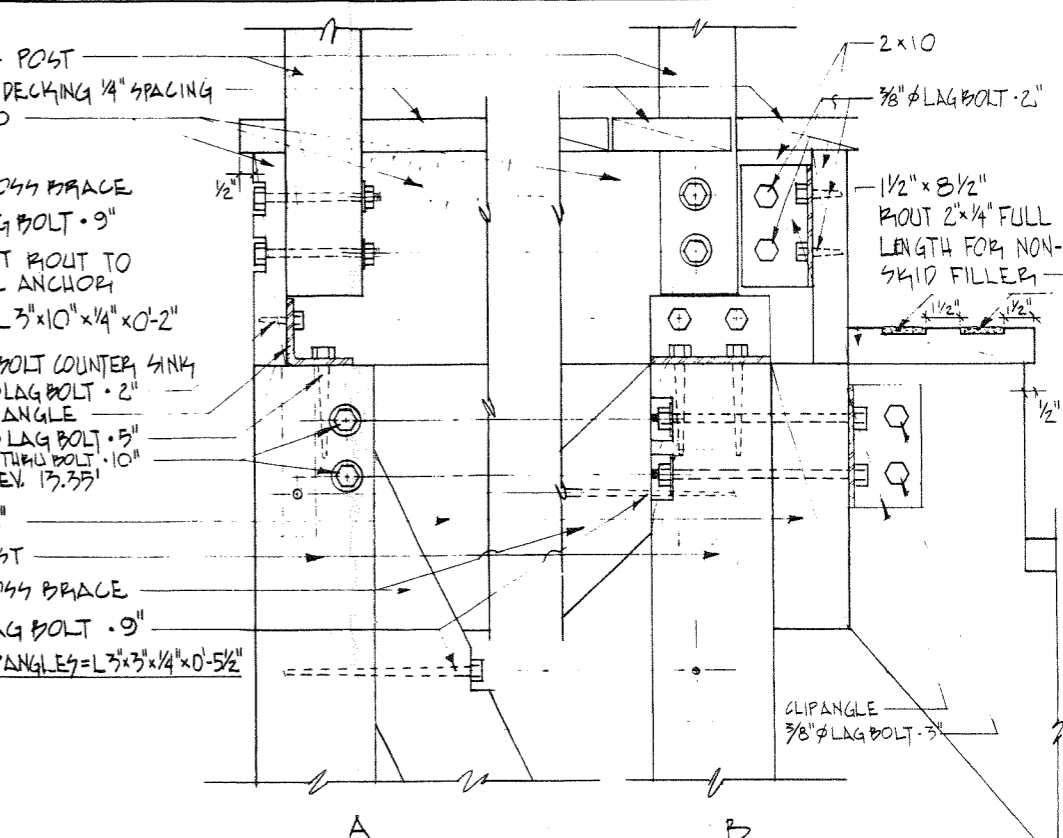 POST
DECKING 1/4" SPACING
1/2"
OSS BRACE
G BOLT · 9"
T ROUT TO
ANCHOR
L 3"x10"x1/4"x0'-2"
BOLT COUNTER SINK
LAG BOLT · 2"
ANGLE
LAG BOLT · 5"
THRU BOLT · 10"
EV. 13.35'
ST
OSS BRACE
AG BOLT · 9"
ANGLES=L3"x3"x1/4"x0'-5 1/2"
2x10
3/8"Ø LAG BOLT · 2"
1 1/2" x 8 1/2"
ROUT 2"x1/4" FULL
LENGTH FOR NON-
SKID FILLER
1 1/2"
1 1/2"
1/2"
CLIP ANGLE
3/8"Ø LAG BOLT - 3"
A
B